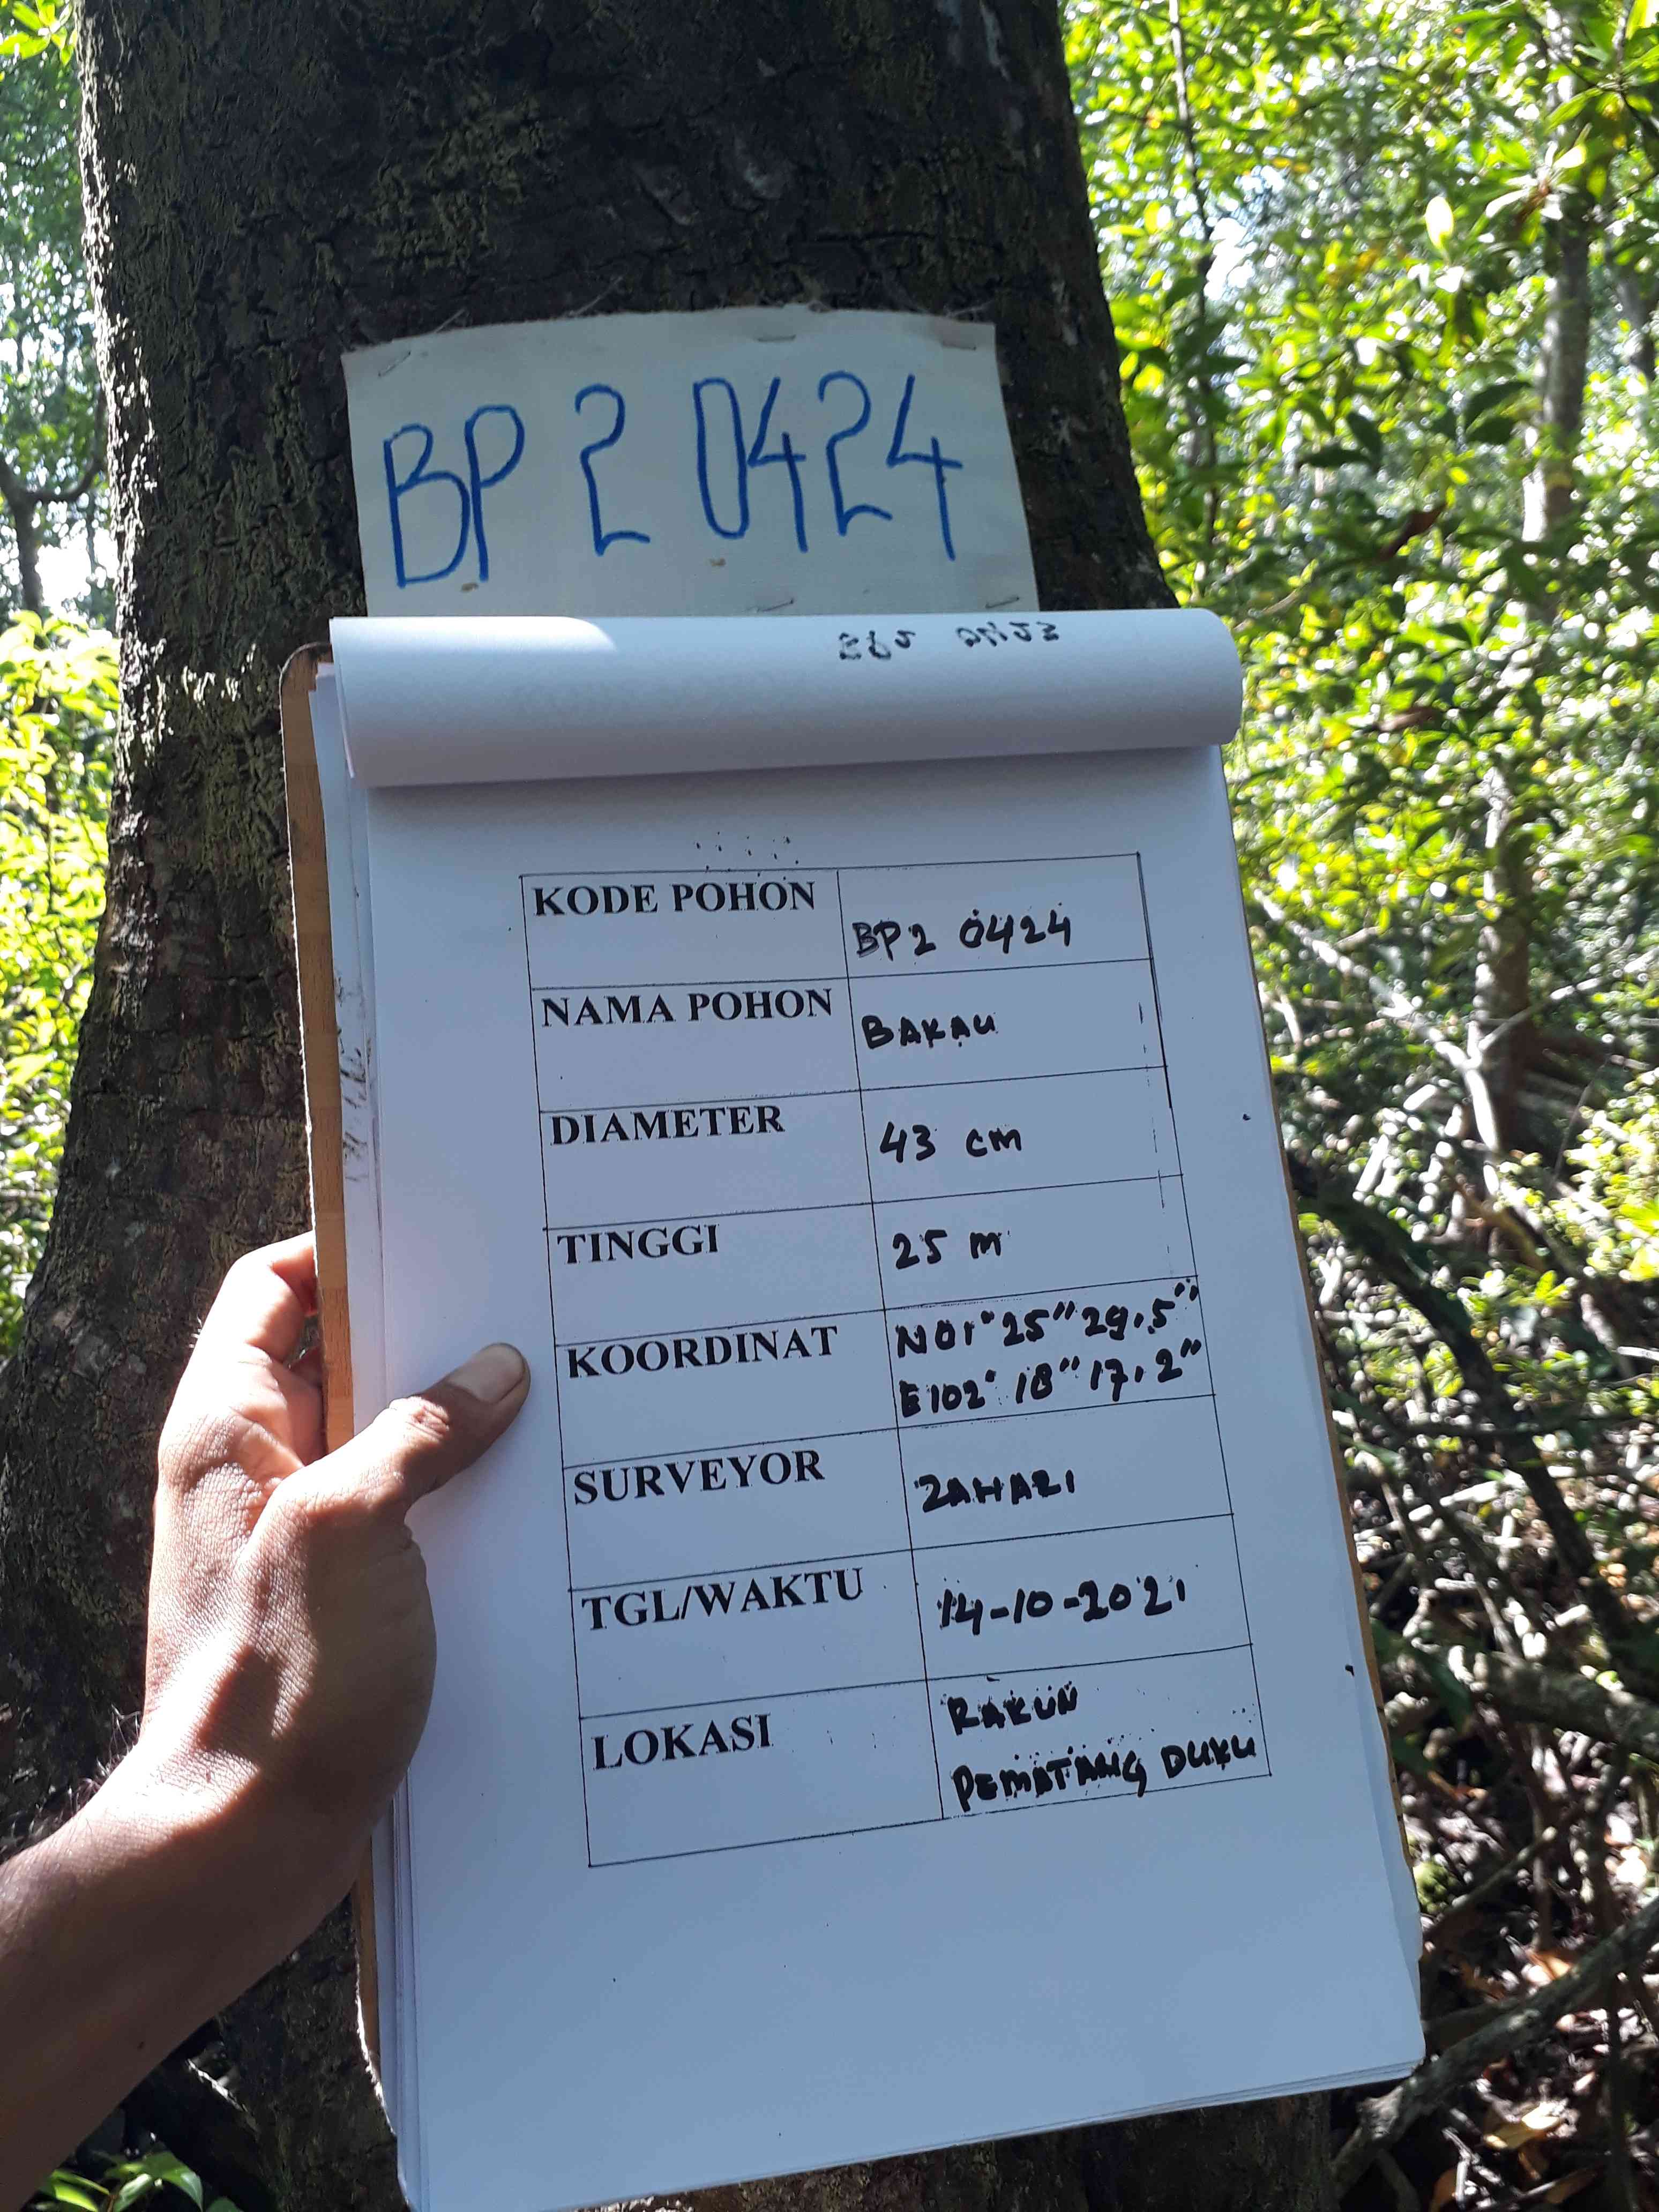 BP 2 0424
KODE POHON
BP2 0424
NAMA POHON
BAKAU
DIAMETER
43 cm
TINGGI
25 m
KOORDINAT
N01° 25" 29.5"
E102° 18" 17.2"
SURVEYOR
ZAHARI
TGL/WAKTU
14-10-2021
LOKASI
RAKUN
PEMATANG DUKU